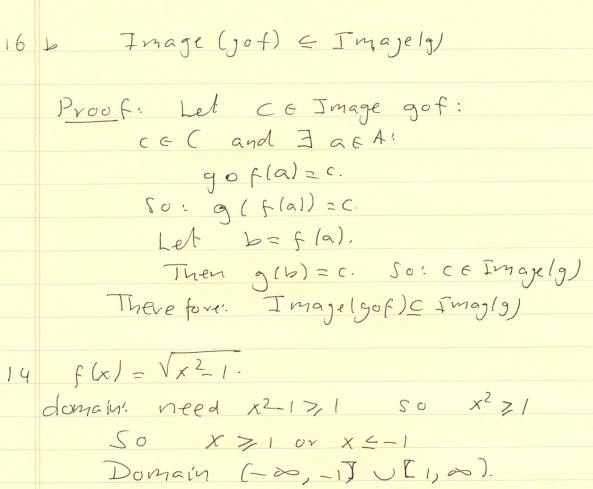 16 b Image (gof) ⊆ Image(g)
Proof: Let c ∈ Image gof:
c ∈ C and ∃ a ∈ A:
g o f(a) = c.
So: g(f(a)) = c.
Let b = f(a).
Then g(b) = c. So: c ∈ Image(g)
Therefore: Image(gof) ⊆ Imag(g)
14 f(x) = √x²-1.
domain: need x²-1 ≥ 1 so x² ≥ 1
So x ≥ 1 or x ≤ -1
Domain (-∞, -1] ∪ [1, ∞).